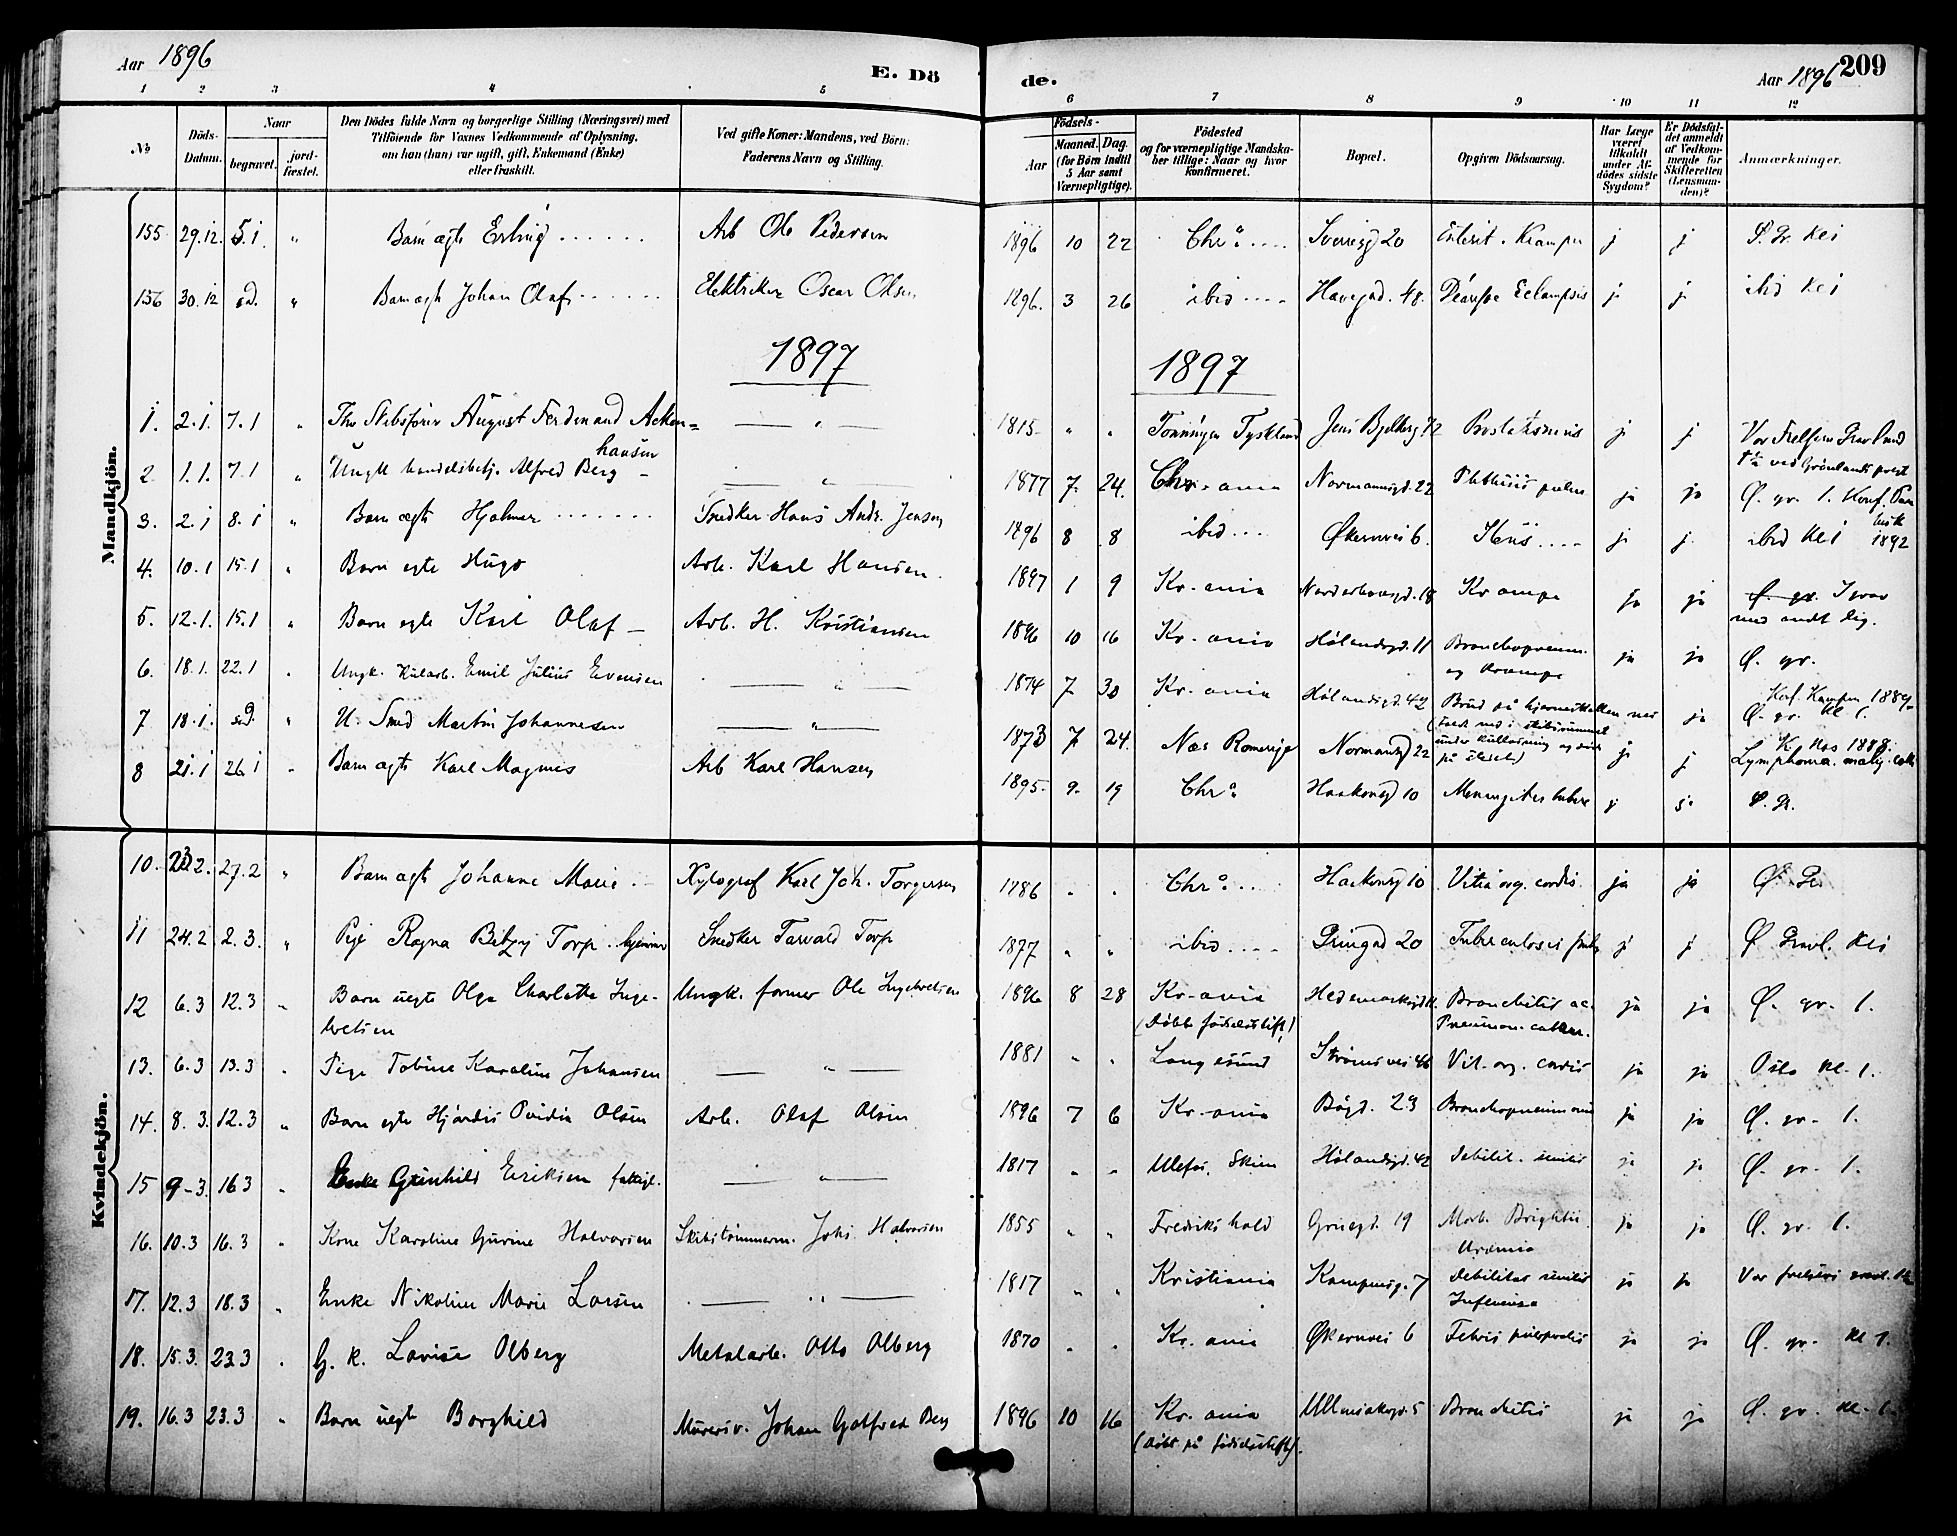 Aar 1896
E. Dö
de.
Aar 1896
209
1 2 3 4 5 6 7 8 9 10 11 12
No
Döds-
Datum.
Naar
begravet.
jord-
fæstet.
Den Dödes fulde Navn og borgerlige Stilling (Næringsvei) med
Tilföiende for Voxnes Vedkommende af Oplysning,
om han (hun) var ugift, gift, Enkemand (Enke)
eller fraskilt.
Ved gifte Koner: Mandens, ved Börn:
Faderens Navn og Stilling.
Födsels-
Aar
Maaned. Dag.
(for Börn indtil
5 Aar samt
Værnepligtige).
Födested
og for værnepligtige Mandska-
ber tillige: Naar og hvor
konfirmeret.
Bopæl.
Opgiven Dödsaarsag.
Har Læge
været
tilkaldt
under Af-
dödes sidste
Sygdom?
Er Dödsfal-
det anmeldt
af Vedkom-
mende for
Skifteretten
(Lensman-
den)?
Anmærkninger.
Mandkjön.
155 29.12. 5.1. " Barn ægte Erling Arb Ole Pedersen 1896 10 22 Chr.a Sverresgd 20 Krampe j j Ø. Gr. Kl 1
156 30.12 sd. " Barn ægte Johan Olaf Elektriker Oscar Olsen 1896. 3 26 ibid Havegad. 48. Eclampsis j j ibid Kl 1
1897
1897
1. 2.1. 7.1 " Skibsfører August Ferdinand Acken=
hausen
— " — 1815 " " Tönningen Tyskland Jens Bjelkesg 72 j j Vor Frelsers Gravlund
ved Grønlands prest
2. 1.1. 7.1 " Ungk handelsbetj. Alfred Berg — " — 1877 7. 24. Chr.ania Normannsgd. 22 Phthisis pulm ja ja Ø. gr. 1. Konf.
1892
3. 2.1 8.1 " Barn ægte Hjalmar Snedker Hans Andr. Jensen 1896 8 8 ibid Økernvei 6. j j ibid Kl 1
4. 10.1 15.1 " Barn egte Hugo Arb. Karl Hansen. 1897 1 9 Kr.ania 18 Krampe ja ja Ø. gr. I grav
med andt lig.
5. 12.1. 15.1 " Barn egte Karl Olaf Arb. H. Kristiansen 1896 10 16 Kr.ania Hølandsgd. 11 Bronchopneum.
og Krampe
ja ja Ø. gr.
6. 18.1. 22.1 " Ungk. Kularb. Emil Julius Evensen — " — 1874 7. 30 Kr.ania Hølandsgd. 42 Brud på hjerneskallen
ja Konf. Kampen 1889.
Ø. gr. Kl 1.
7 18.1. sd. " U. Smed Martin Johannesen — " — 1873 7. 24. Næs Romerige Normansgd 22 j j K. Næs 1888.
Lymphoma. malig. colli
8 21.1 26.1 " Barn ægte Karl Magnus Arb Karl Hansen 1895. 9. 19 Chr.a Haakonsgd 10 Meningites tuberc j j Ø. Gr.
Kvindekjön.
10. 23.2. 27.2 " Barn ægte Johanne Marie Xylograf Karl Joh. Torgersen 1886 " " Chr.a Haakonsgd 10 Vitia org. cordis. ja ja Ø. Gr
11 24.2 2.3. " Pige Ragna Betzy Torp. hjemme Snedker Tarvald Torp 1877 " " ibid 20 Tuberculosis pulm j j Ø Gravl. Kl 1
12 6.3 12.3 " Barn uegte Olga Charlotte Inge-
bretsen
Ungk. former Ole Ingebretsen 1896 8 28 Kr.ania
(Døbt fødselsstift.)
Hedemarksgd Bronchitis ac.
Pneumon. catarr.
ja ja Ø. gr. 1.
13. 6.3 13.3 " Pige Tobine Karoline Johansen — " — 1881 " " Langesund Strømsvei 46 Vit. org. cordis ja ja Oslo Kl. 1.
14. 8.3. 12.3 " Barn egte Hjørdis Ovidia Olsen Arb. Olaf Olsen 1896 7 6 Kr.ania Bøgd. 23 Bronchopneumoni ja ja Ø. gr. 1.
15 9.3. 16.3 " Enke Gunhild Eriksen fattigl. — " — 1817 " " Ulefos. Skien Hølandsgd. 42 Debilit. senilis ja ja Ø. gr. 1.
16. 10.3 16.3 " Kone Karoline Gurine Halvorsen Skibstømmerm. Johs. Halvorsen 1855 " " Fredrikshald Gruegd. 19 Morb. Brightii.
Uræmia
ja ja Ø. gr. 1.
17. 12.3 18.3 " Enke Nikoline Marie Larsen — " — 1817 " " Kristiania Kampensg. 7 Debilitas senilis
Influensa
ja ja Vor frelsers gravl.
18. 15.3. 23.3 " G. k. Lovise Olberg Metalarb. Otto Olberg 1870 " " Kr.ania Økernvei 6 Febris puerperalis ja ja Ø. gr. Kl 1.
19. 16.3 23.3 " Barn uegte Borghild Murersv. Johan Gotfred Berg 1896 10 16 Kr.ania
(døbt på fødselsstift.)
5 Bronchitis ja ja Ø. gr. Kl. 1.